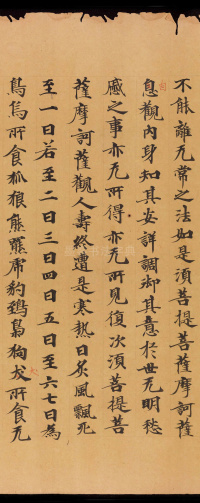 不能離无常之法如是須菩提菩薩摩訶薩
息觀內身知其安詳調御其意於世无明愁
慼之事亦无所得亦无所見復次須菩提菩
薩摩訶薩觀人壽終遭是寒熱日炙風飄死
至一日若至二日三日四日五日至六七日為
鳥烏所食狐狼熊羆虎豹鵄梟狗犬所食无